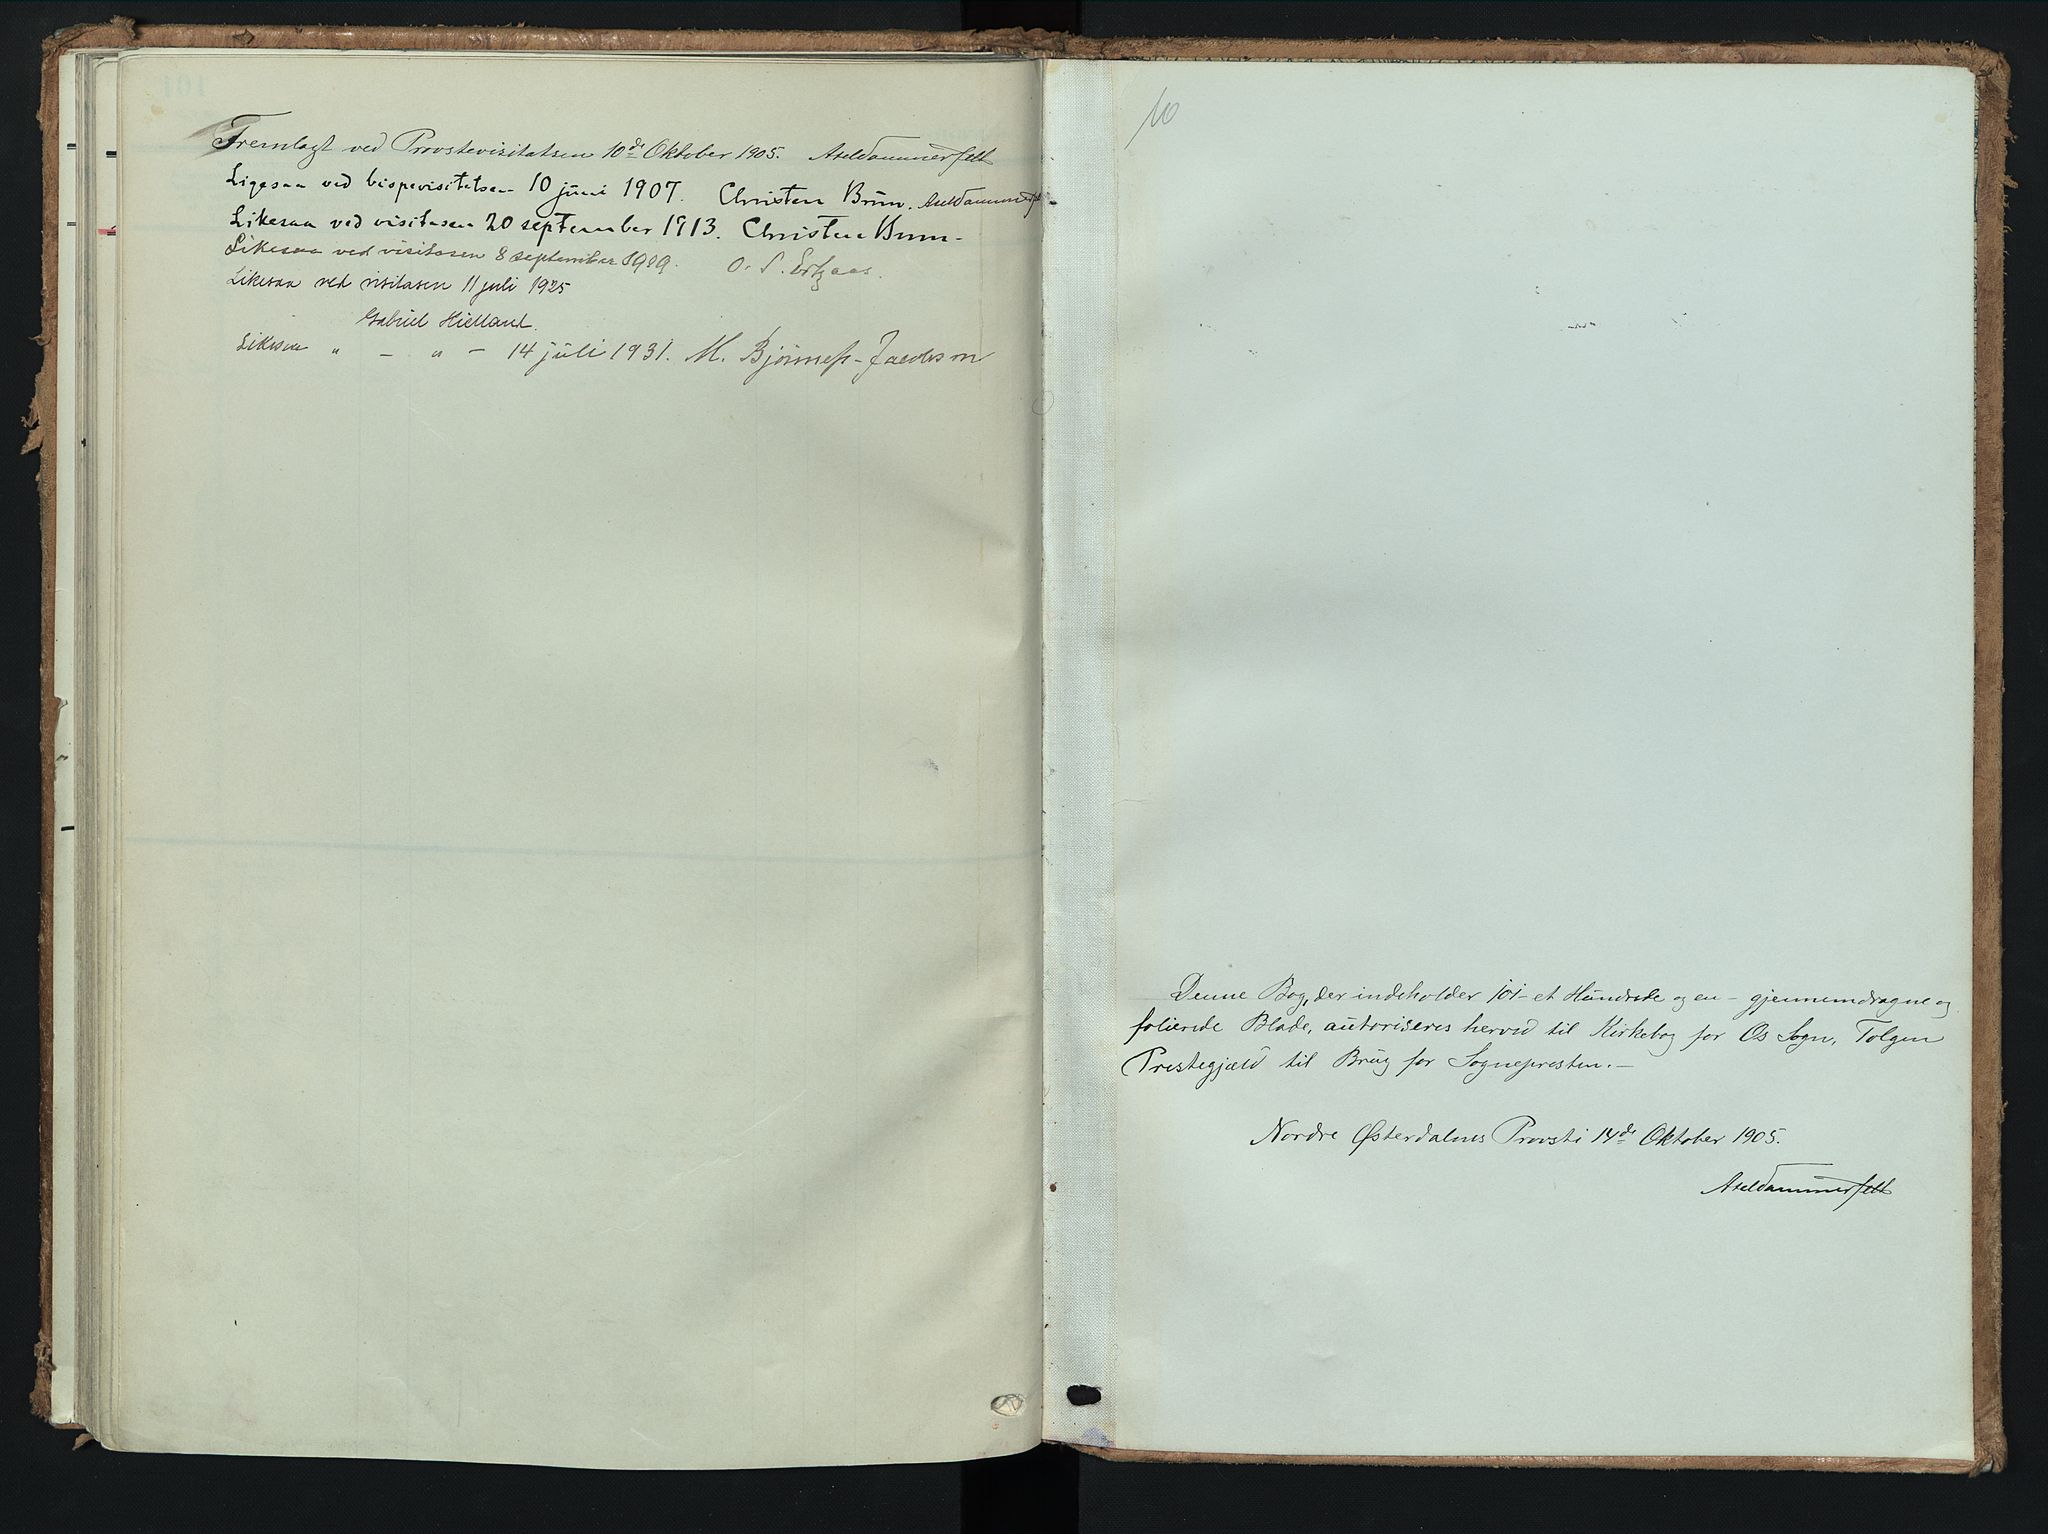 Fremlagt ved Provstevisitatsen 10de Oktober 1905. Axel Dammerfelt
Ligesaa ved bispevisitatsen 10 juni 1907. Christen Brun. Axel Dammerfelt
Likesaa ved visitasen 20 september 1913. Christen Brun.
Likesaa ved visitasen 8 september 1919. O.
Likesaa ved visitasen 11 juli 1925
Gabriel Kielland.
Likesaa " - " - 14 juli 1931. M. Bjönness-Jacobsen
10
Denne Bog, der indeholder 101 - et Hundrede og en - gjennemdragne og
folierede Blade, autoriseres herved til Kirkebog for Os Sogn, Tolgen
Prestegjæld til Brug for Sognepresten. -
Nordre Østerdalens Provsti 14de Oktober 1905.
Axel Dammerfelt